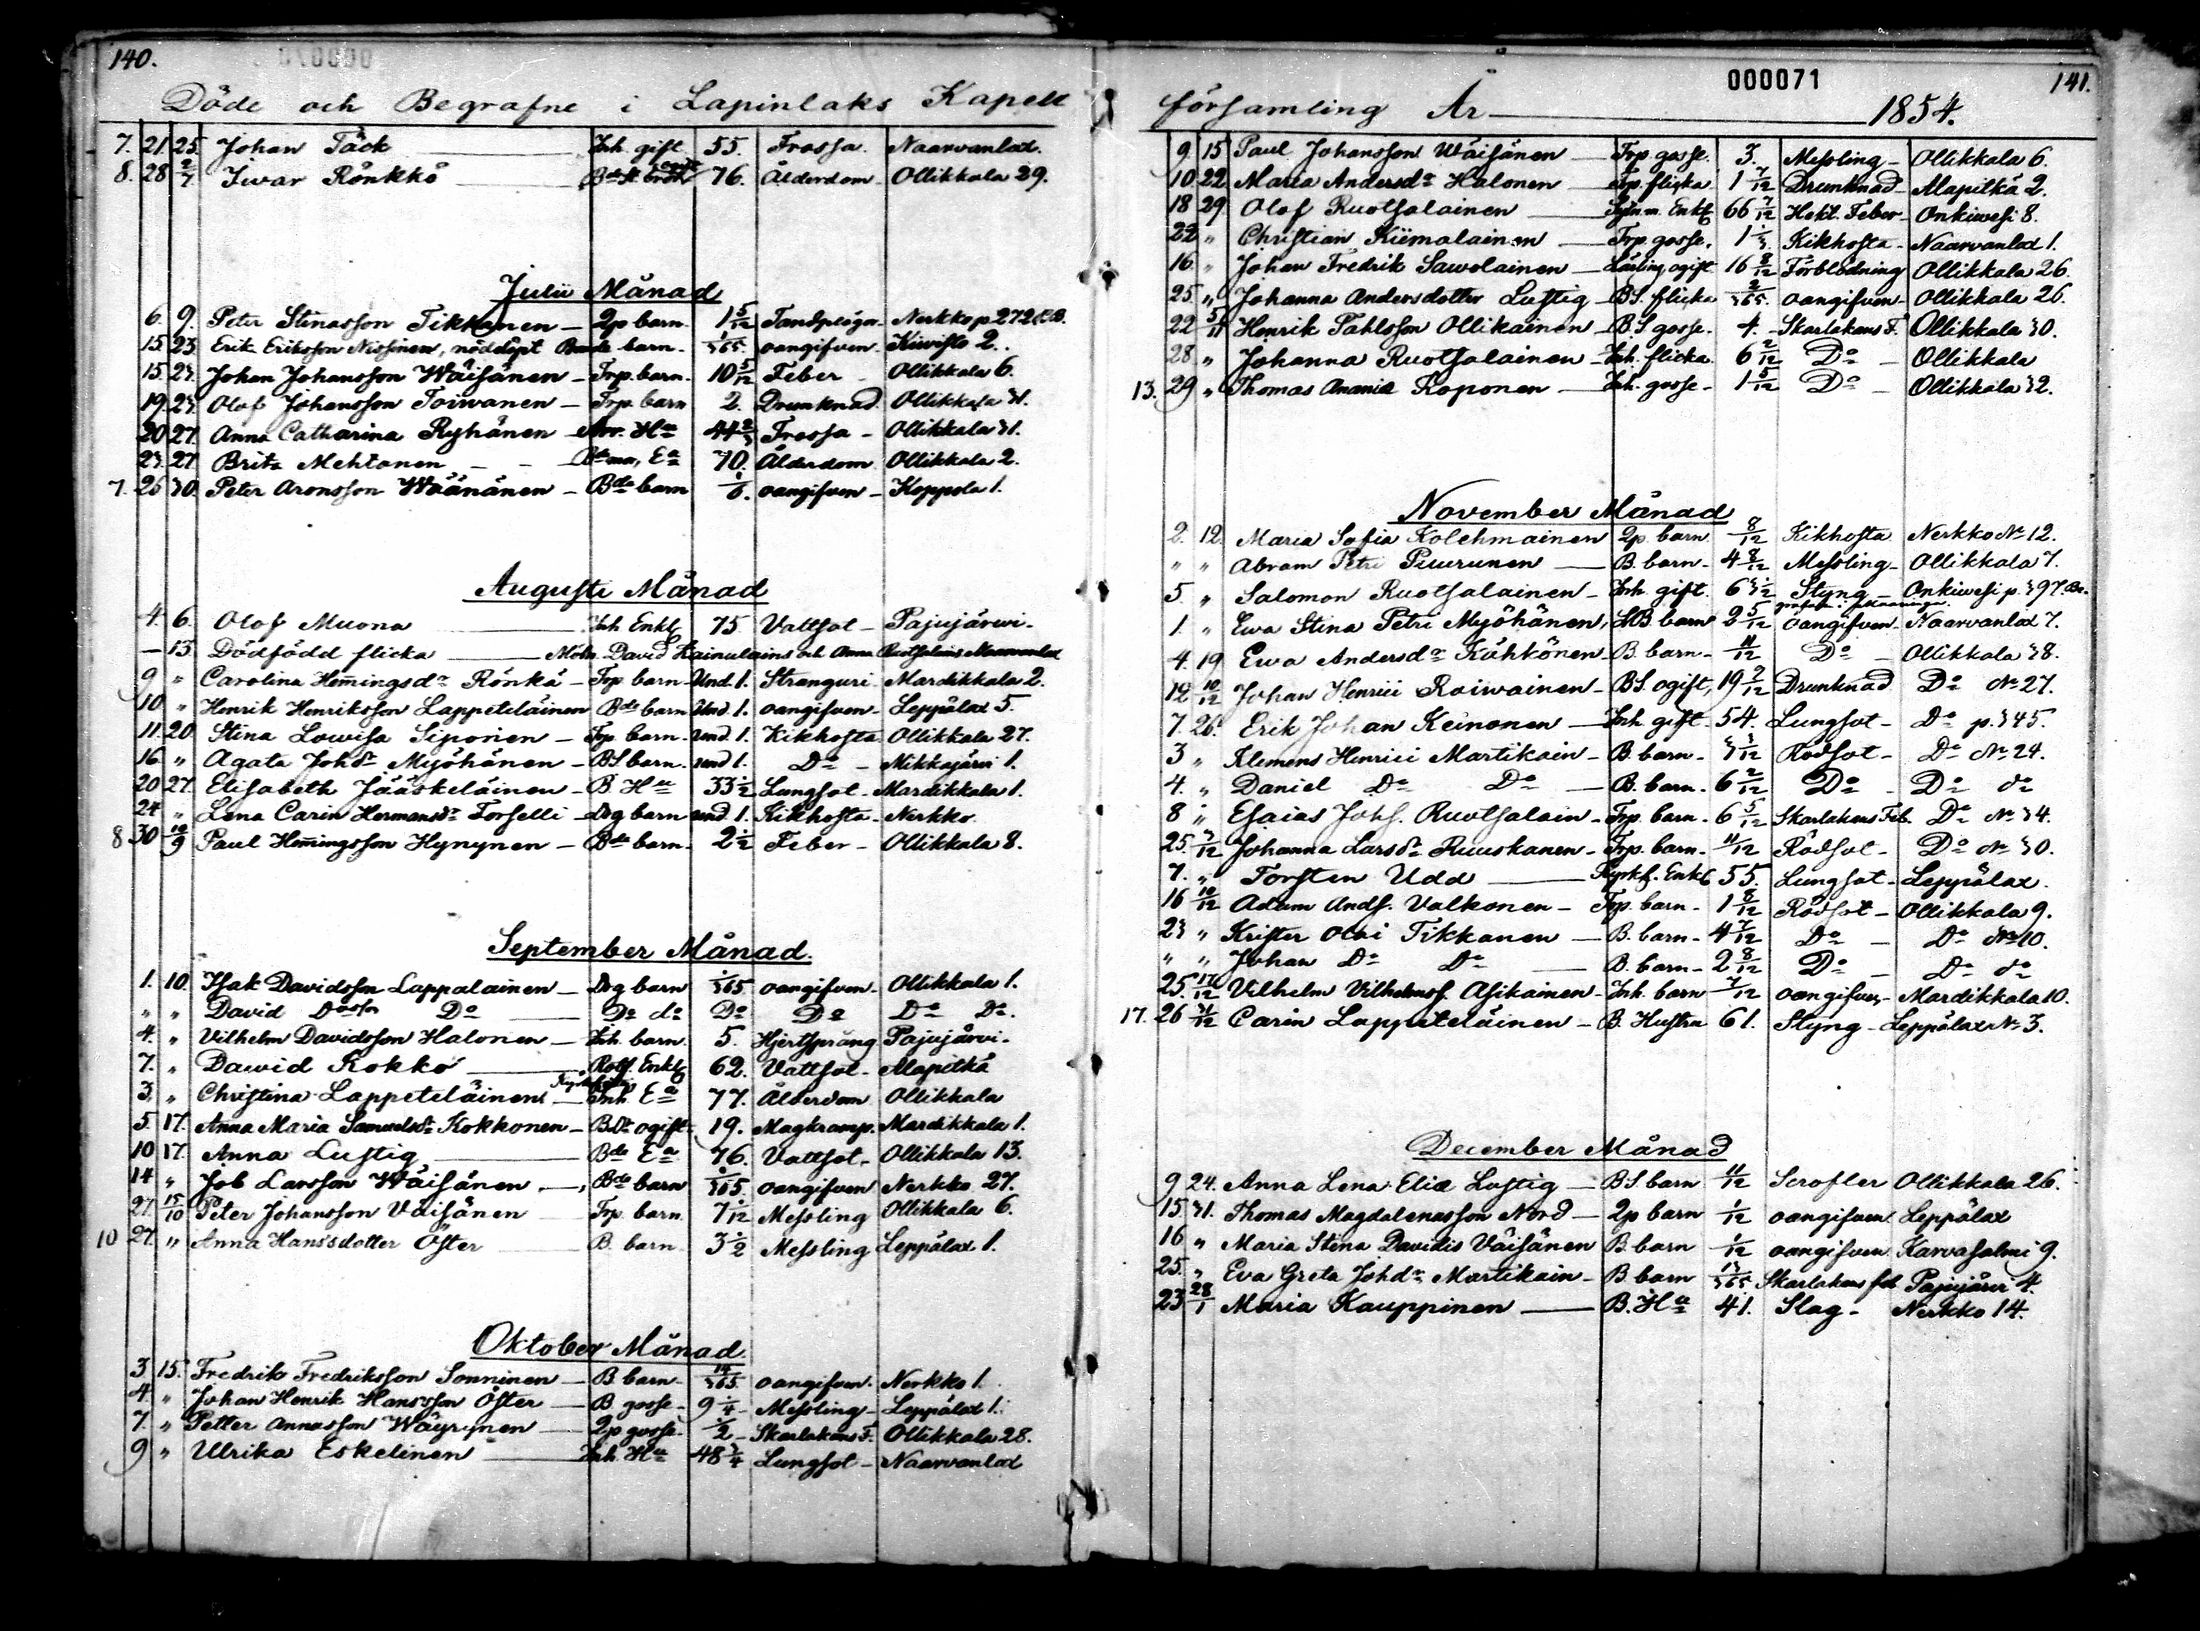 140.
Döde och Begrafne i Lapinlaks Kapell
7. 21 25 Johan Täck — Inh. gift 55. Frossa. Naarvanlax.
8. 28 2/7 Ivar Rönkkö — 76. Ålderdom. Ollikkala 29.
Julii Månad
6. 9. Peter Stinasson Tikkanen — 2p barn. 1 5/12 Tandplågor. Nerkko p. 272
15. 23. Erik Eriksson Nissinen, nöddöpt Bonde barn. 1/365. oangifven. Kiwisto 2.
15. 23. Johan Johansson Wäisänen — Trp. barn. 10 5/12 Feber — Ollikkala 6.
19. 23. Olof Johansson Toivanen — Trp. barn 2. Drunknad. Ollikkala 31.
20 27. Anna Catharina Ryhänen — Hu 44 2/3 Frossa — Ollikkala 31.
23. 27 Brita Mehtonen — — Ea 70. Ålderdom. Ollikkala 2.
7. 26 30. Peter Aronsson Wäänänen — Bde barn 1/6. oangifven — Koppola 1.
Augusti Månad
4. 6. Olof Muona — Inh Enkl. 75. Vattsot — Pajujärwi.
— 13. Dödfödd flicka — David Kainulains och Anna Ruotsalains Naarvanlax
9 " Carolina Hemingsdr Rönkä — Trp barn. Und. 1. Stranguri. Mardikkala 2.
10 " Henrik Henriksson Lappeteläinen Bde barn Und. 1. oangifven — Leppälax 5.
11. 20. Stina Lowisa Siponen — Trp. barn. und. 1. Kikhosta Ollikkala 27.
16 " Agata Johsdr Myöhänen — BS barn. und 1. Do — Nikkajärvi 1.
20 27. Elisabeth Jääskeläinen — B. Hu 33 1/2 Lungsot — Mardikkala 1.
24 " Lena Carin Hermansdr Torselli — Drg barn und. 1. Kikhosta — Nerkko.
8 30 10/9 Paul Hemingsson Hynynen — Bde barn. 2 1/2 Feber — Ollikkala 8.
September Månad.
1. 10. Isak Davidsson Lappalainen — Drg barn 1/365 oangifven. Ollikkala 1.
" " David Dosson Do Do do Do Do Do Do.
4. " Vilhelm Davidsson Halonen — Inh. barn. 5. Hjertsprång Pajujärvi.
7. " Dawid Kokko — Rotf. Enkl. 62. Vattsot — Alapitkä
3. " Christina Lappeteläinen — Inh. Ea 77. Ålderdom Ollikkala
5. 17. Anna Maria Samuelsdr Kokkonen — B.Dr ogift. 19. Magkramp. Mardikkala 1.
10 17. Anna Lustig — Bde Ea 76. Vattsot — Ollikkala 13.
14 " Job Larsson Wäisänen —, Bde barn /365. oangifven Nerkko 27.
27. 15/10 Peter Johansson Väisänen — Trp. barn. 7 1/12 Messling Ollikkala 6.
10 27. " Anna Hansdotter Öster — B. barn. 3 1/2 Messling Leppälax 1.
Oktober Månad.
3. 15. Fredrik Fredriksson Sonninen — B. barn. 14/365. oangifven. Nerkko 1.
4 " Johan Henrik Hansson Öster — B. gosse. 9 1/4 Messling — Leppälax 1.
7 " Petter Annasson Wäyrynen — 2p gosse. 1/2 — Skarlakans F. Ollikkala 28.
9 " Ulrika Eskelinen — Inh. Hu 48 3/4 Lungsot — Naarvanlax
000071
141.
församling År — 1854.
9. 15 Paul Johansson Wäisänen — Trp. gosse. 3. Messling — Ollikkala 6.
10. 22. Maria Andersdr Halonen — Trp. flicka 1 7/12 Drunknad — Alapitkä 2.
18 29 Olof Ruotsalainen — Enkl. 66 7/12 Hekt. Feber — Onkiwesi 8.
22 " Christian Kiimalainen — Trp. gosse. 1 1/3 Kikhosta — Naarvanlax 1.
16. " Johan Fredrik Sawolainen — Lärling ogift 16 8/12 Förblödning Ollikkala 26.
25. " Johanna Andersdotter Lustig — BS. flicka 2/365. oangifven — Ollikkala 26.
22 5/11 Henrik Pahlsson Ollikainen — B.S gosse. 4. Skarlakans F. Ollikkala 30.
28 " Johanna Ruotsalainen — Inh. flicka. 6 2/12 Do — Ollikkala
13. 29 " Thomas Ananiæ Koponen — Inh. gosse. 1 5/12 Do — Ollikkala 32.
November Månad
2. 12. Maria Sofia Kolehmainen 2p. barn. 8/12 Kikhosta Nerkko No 12.
" " Abram Petri Puurunen — B. barn — 4 8/12 Messling — Ollikkala 7.
5 " Salomon Ruotsalainen — Inh. gift. Styng — Onkiwesi p. 397.
1. " Ewa Stina Petri Myöhänen, SB barn 2 5/12 oangifven — Naarvanlax 7.
4. 19. Ewa Andersdr Kähkönen — B. barn — 11/12 Do — Ollikkala 38.
12 10/12 Johan Henrici Roivainen — BS. ogift, 19 2/12 Drunknad Do No 27.
7. 26. Erik Johan Keinonen — Inh. gift. 54. Lungsot — Do p. 345.
3 " Klemens Henrici Martikain — B. barn — 3 3/12 Rödsot — Do No 24.
4. " Daniel Do Do — B. barn. 6 2/12 Do — Do do
8 " Esaias Johs. Ruotsalain — Trp. barn. 6 5/12 Skarlakans Feb. Do No 34.
25. 3/12 Johanna Larsdr Ruuskanen — Trp. barn — 11/12 Rödsot — Do No 30.
7. " Torsten Udd — Enkl. 55. Lungsot — Leppälax.
16 10/12 Adam Ands. Valkonen — Trp. barn. 1 8/12 Rödsot — Ollikkala 9.
23 " Krister Olai Tikkanen — B. barn. 4 7/12 Do — Do No 10.
" " Johan Do Do — B. barn — 2 8/12 Do — Do do
25. 17/12 Vilhelm Vilhelmss. Asikainen — Inh. barn 7/12 oangifven — Mardikkala 10.
17. 26 31/12 Carin Lappeteläinen — B. Hustru 61. Styng — Leppälax No 3.
December Månad
9 24. Anna Lena Eliæ Lustig — BS barn 11/12 Scrofler Ollikkala 26.
15 31. Thomas Magdalenasson Nord — 2p barn 1/12 oangifven. Leppälax
16 " Maria Stina Davidis Väisänen B. barn 1/12 oangifven Karvasalmi 9.
25. " Eva Greta Johdr Martikain — B. barn 13/365. Skarlakans feb Pajujärvi 4.
23 28/1 Maria Kauppinen — B. Hu 41. Slag — Nerkko 14.